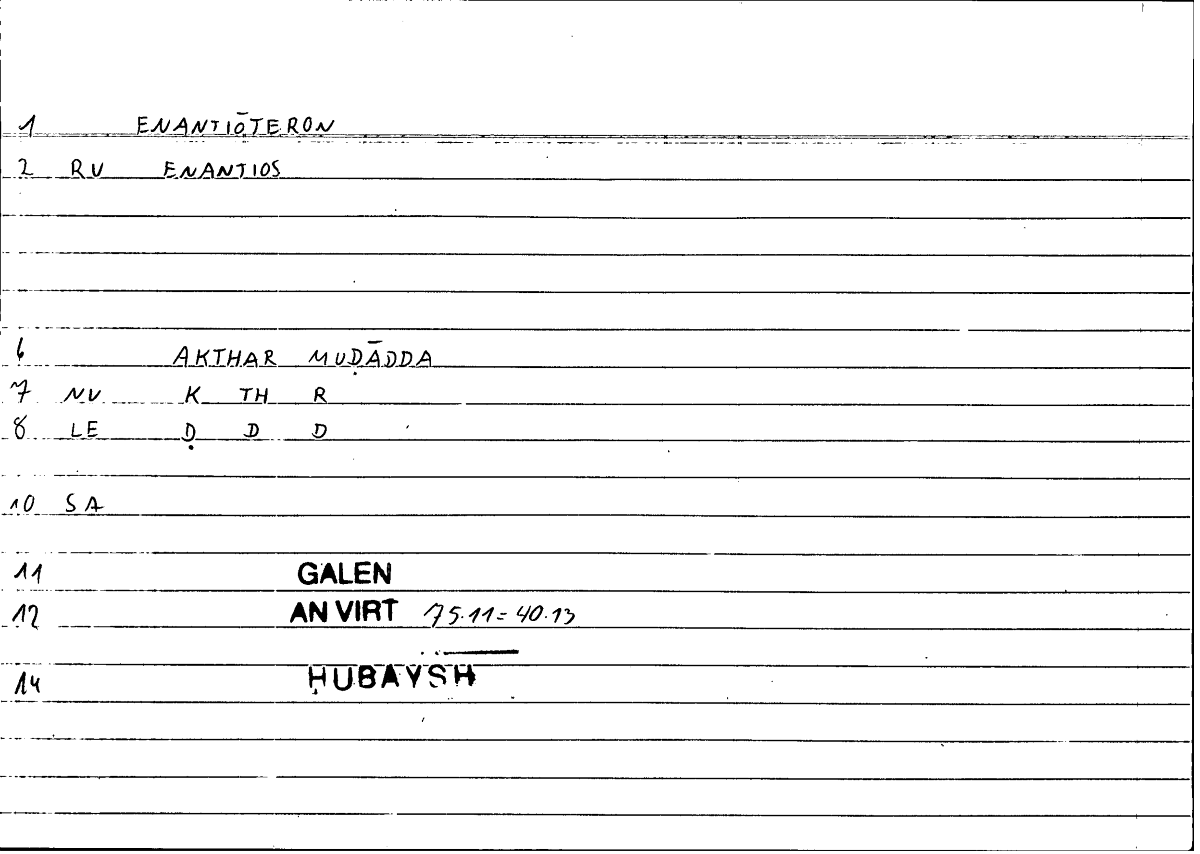 1 ENANTIŌTERON
2 RU ENANTIOS
6 AKTHAR MUḌĀDDA
7 NU K TH R
8 LE Ḍ D D
10 SA
11 GALEN
12 AN VIRT 75.11=40.13
14 ḤUBAYSH